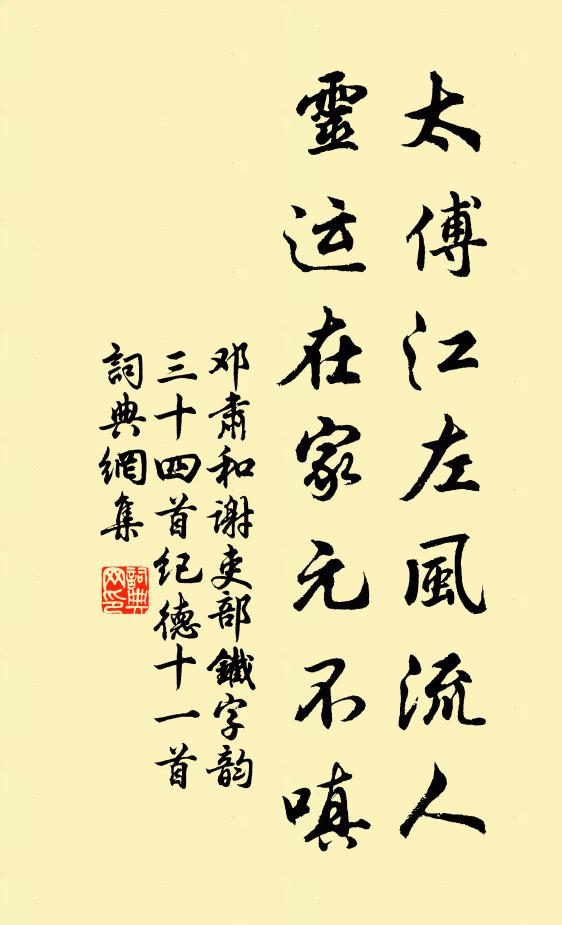 太傅江左風流人
靈运在家元不嗔
邓肅和谢吏部鐵字韵
三十四首纪德十一首
詞典網集
詞典网印